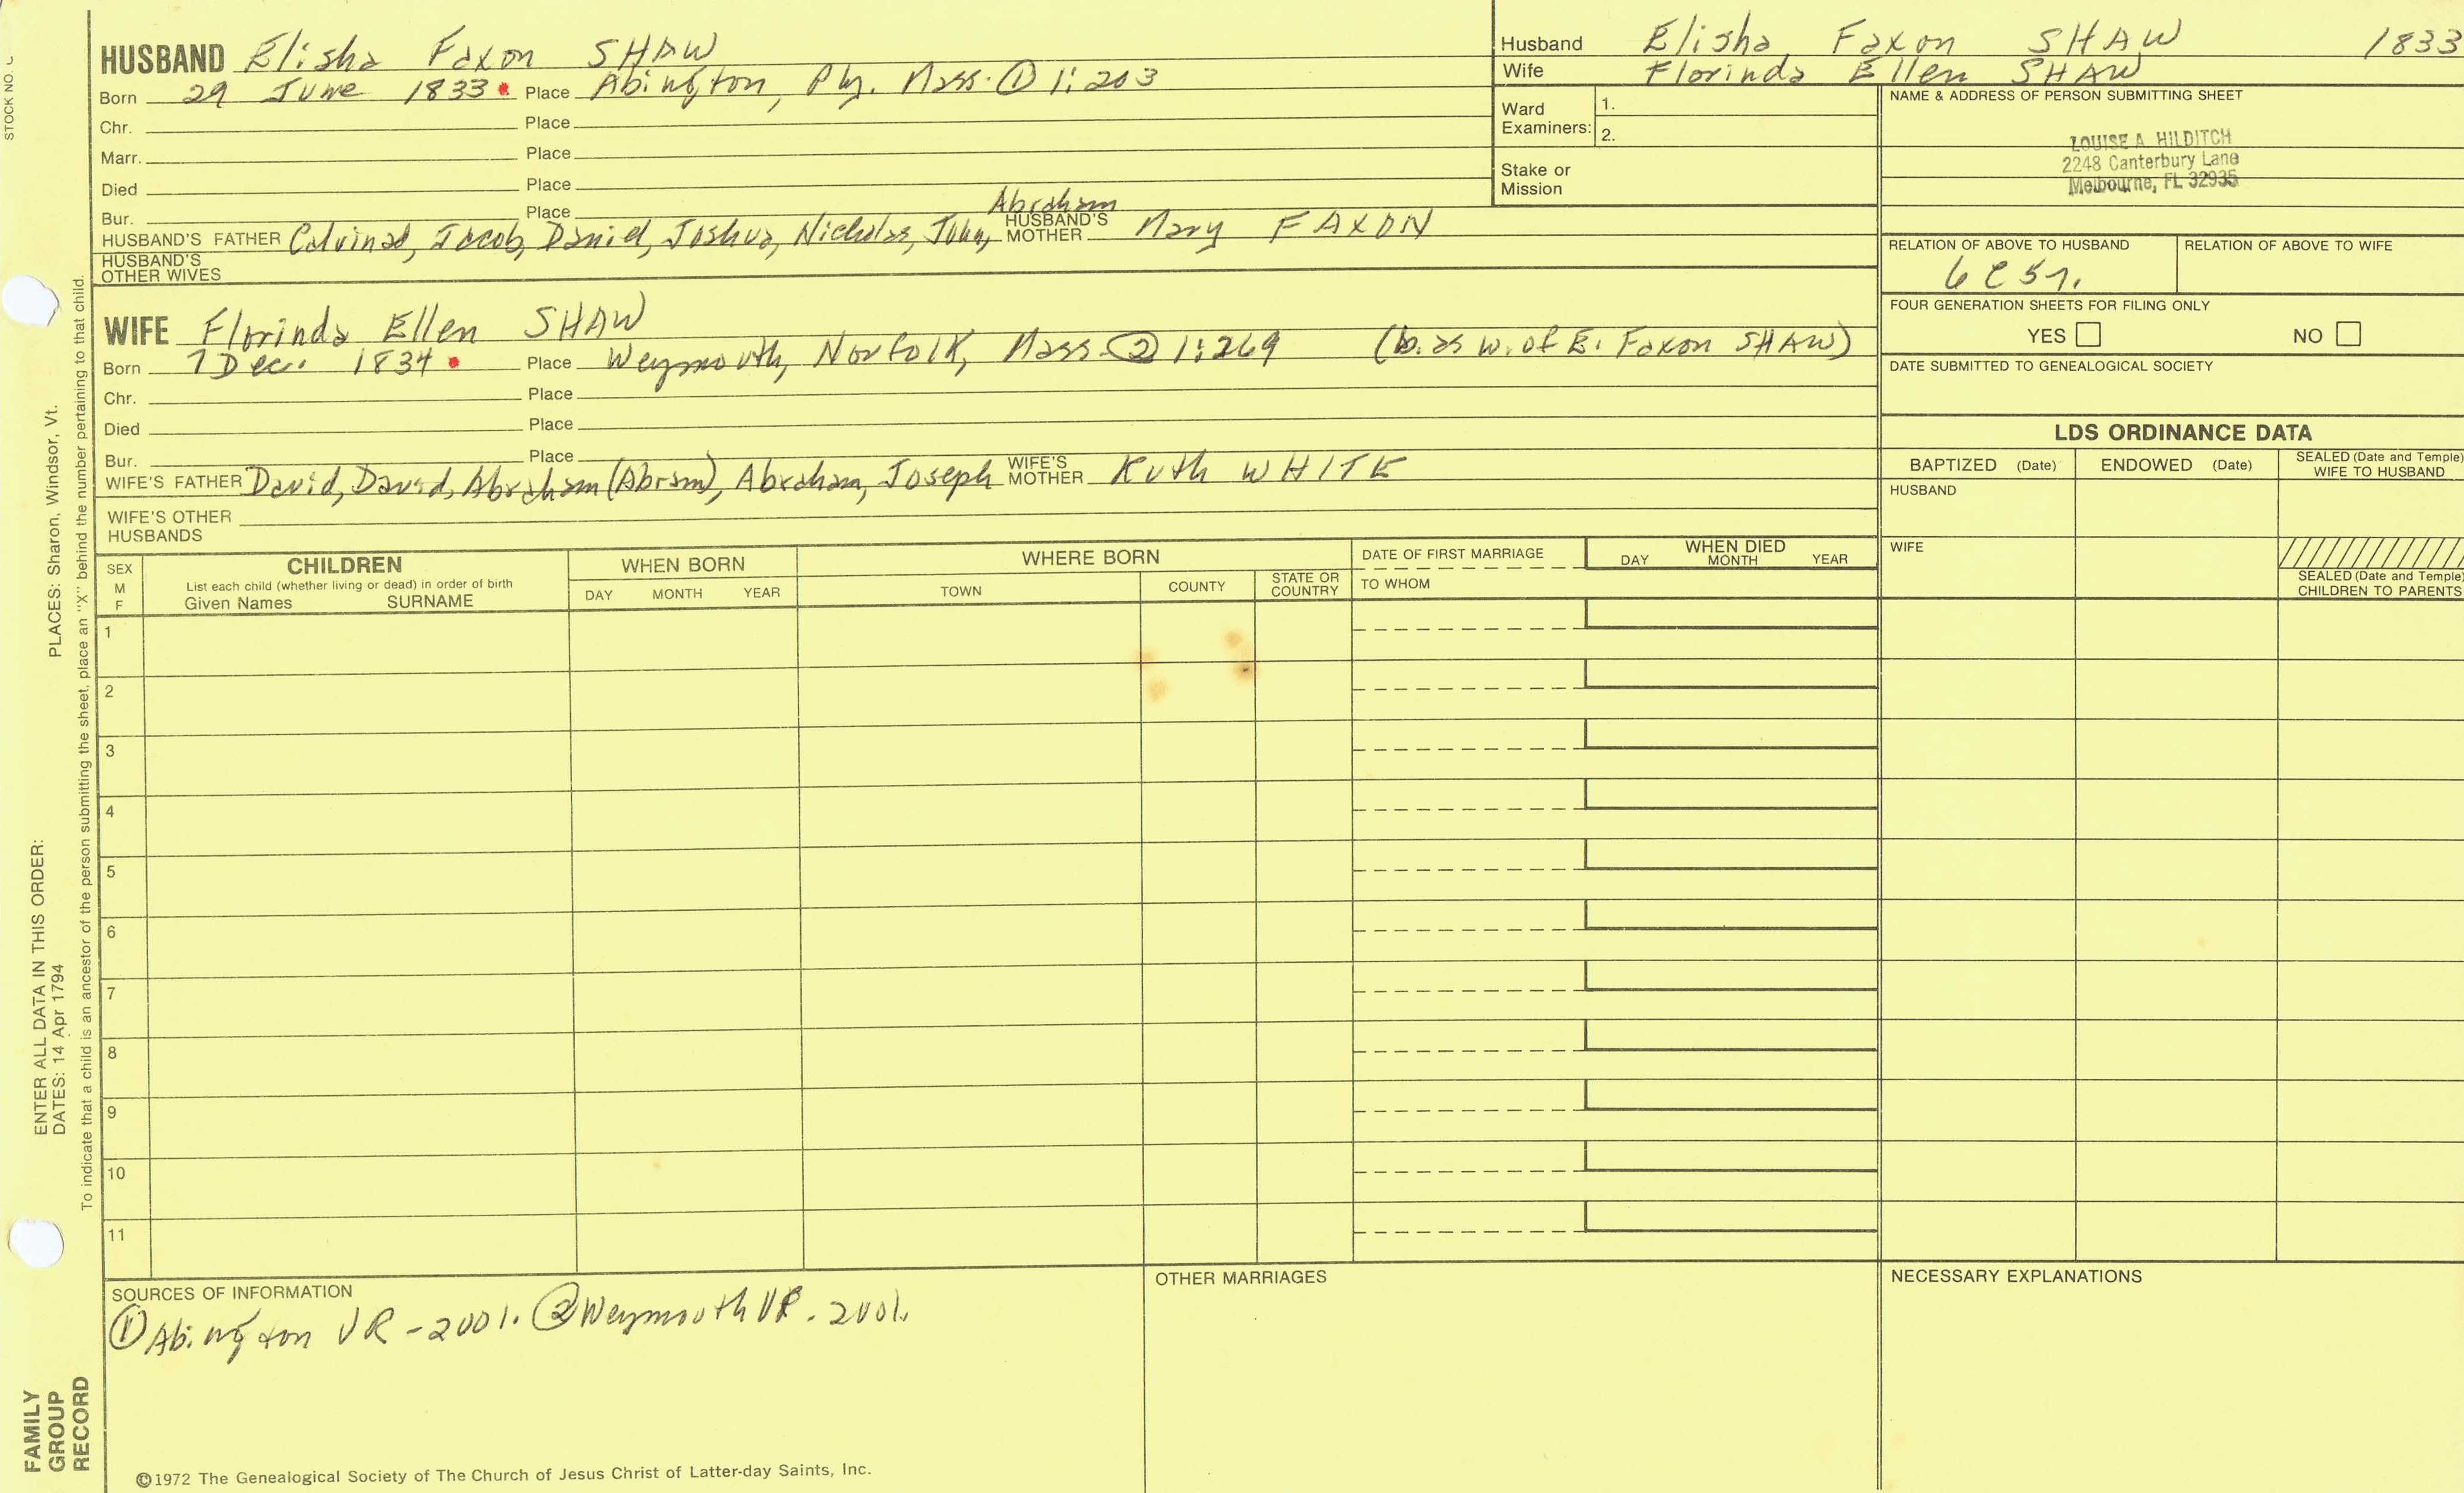 STOCK NO.
HUSBAND Elisha Faxon SHAW
Born 29 June 1833 Place Abington, Ply. Mass. ① 1:203
Chr. Place
Marr. Place
Died Place
Bur. Place
Abraham
HUSBAND'S FATHER Calvin, Jacob, Daniel, Joshua, Nicholas, John, HUSBAND'S MOTHER Mary FAXON
HUSBAND'S OTHER WIVES
WIFE Florinda Ellen SHAW
Born 7 Dec. 1834 Place Weymouth, Norfolk, Mass. ② 1:269 (b. as w. of E. Faxon SHAW)
Chr. Place
Died Place
Bur. Place
WIFE'S FATHER David, David, Abraham (Abram), Abraham, Joseph WIFE'S MOTHER Ruth WHITE
WIFE'S OTHER HUSBANDS
Husband Elisha Faxon SHAW 1833
Wife Florinda Ellen SHAW
Ward Examiners: 1.
2.
Stake or Mission
NAME & ADDRESS OF PERSON SUBMITTING SHEET
LOUISE A. HILDITCH
2248 Canterbury Lane
Melbourne, FL 32935
RELATION OF ABOVE TO HUSBAND RELATION OF ABOVE TO WIFE
6C5
FOUR GENERATION SHEETS FOR FILING ONLY
YES NO
DATE SUBMITTED TO GENEALOGICAL SOCIETY
LDS ORDINANCE DATA
BAPTIZED (Date) ENDOWED (Date) SEALED (Date and Temple) WIFE TO HUSBAND
HUSBAND
WIFE
SEALED (Date and Temple) CHILDREN TO PARENTS
SEX M F CHILDREN WHEN BORN WHERE BORN DATE OF FIRST MARRIAGE WHEN DIED
List each child (whether living or dead) in order of birth
Given Names SURNAME DAY MONTH YEAR TOWN COUNTY STATE OR COUNTRY TO WHOM DAY MONTH YEAR
1
2
3
4
5
6
7
8
9
10
11
SOURCES OF INFORMATION
① Abington VR - 2001. ② Weymouth VR - 2001.
OTHER MARRIAGES
NECESSARY EXPLANATIONS
©1972 The Genealogical Society of The Church of Jesus Christ of Latter-day Saints, Inc.
FAMILY
GROUP
RECORD
ENTER ALL DATA IN THIS ORDER:
DATES: 14 Apr 1794 PLACES: Sharon, Windsor, Vt.
To indicate that a child is an ancestor of the person submitting the sheet, place an "X" behind the number pertaining to that child.